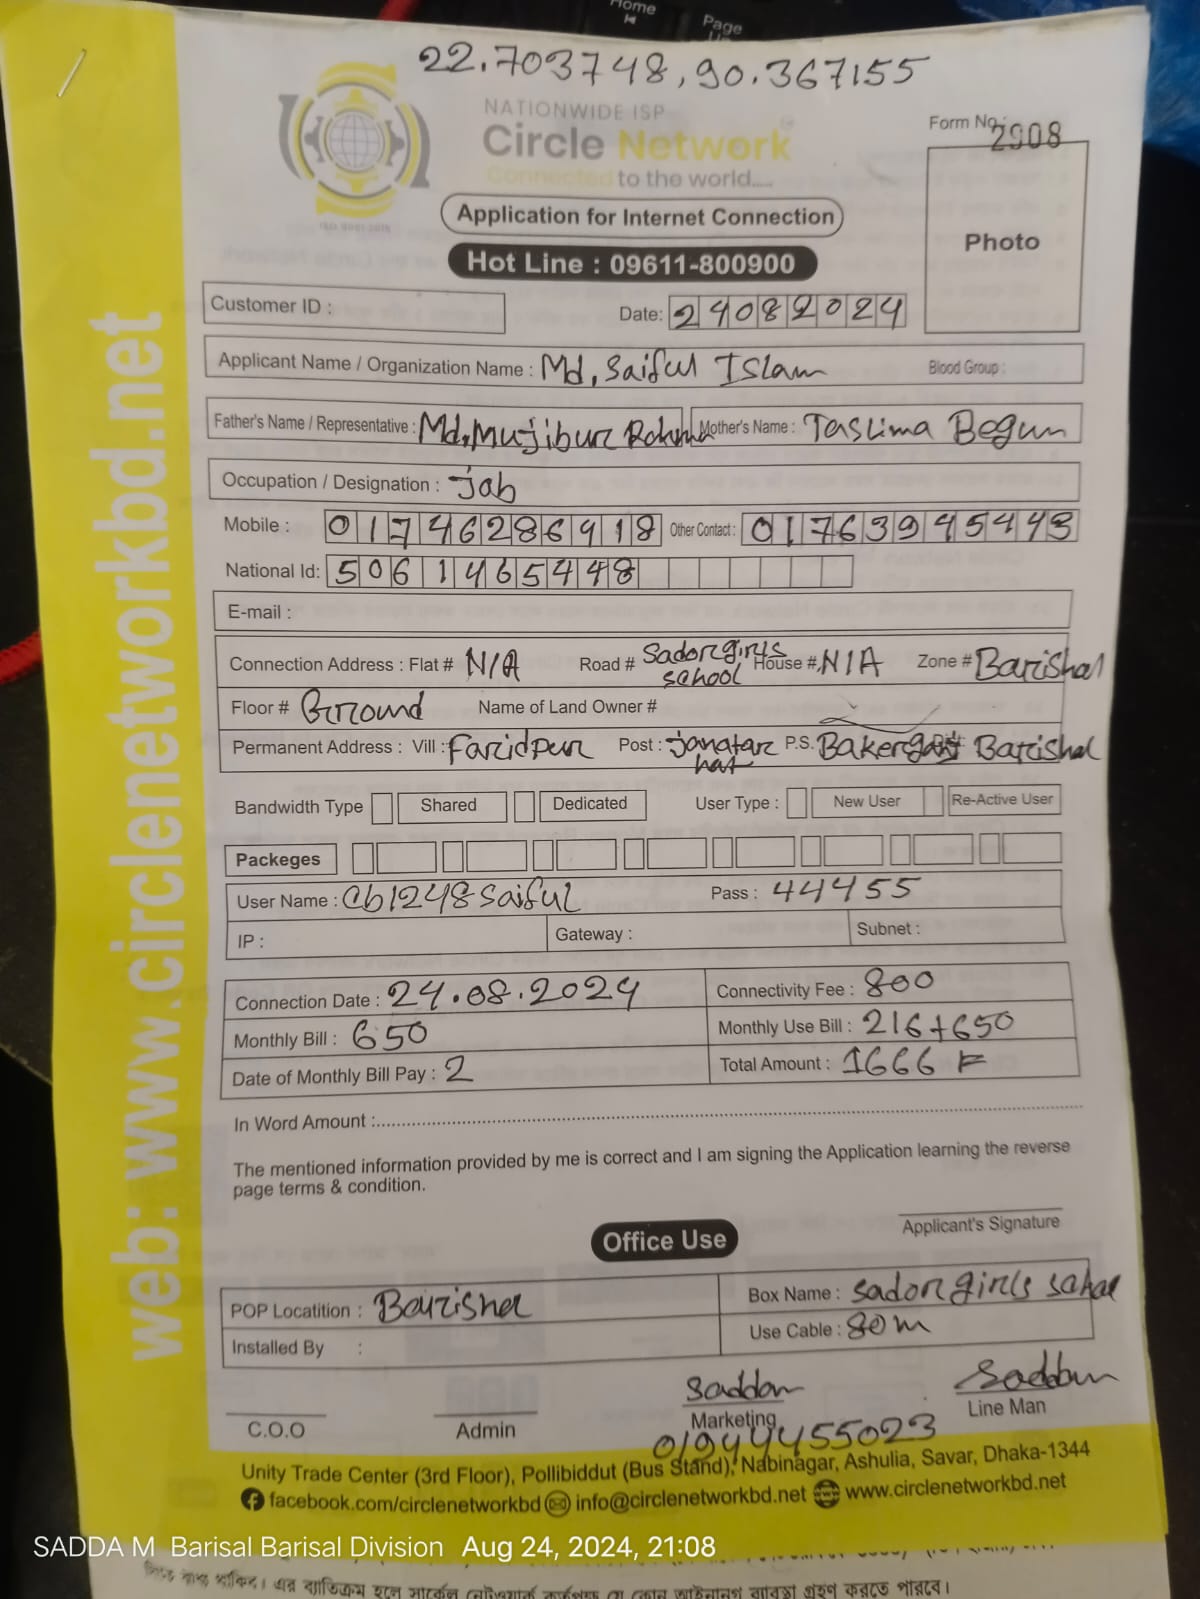 Home
Page
22.703748,90.367155
NATIONWIDE ISP
Circle Network
Connected to the world....
ISO 9001:2015
Form No: 2908
Photo
Application for Internet Connection
Hot Line : 09611-800900
Customer ID :
Date: 24082024
Applicant Name / Organization Name : Md, Saiful Islam Blood Group :
Father's Name / Representative : Md. Mujibur Rohma Mother's Name : Taslima Begum
Occupation / Designation : Job
Mobile : 01746286918 Other Contact : 01763945443
National Id: 5061465448
E-mail :
Connection Address : Flat # N/A Road # Sador girls school House # N/A Zone # Barishal
Floor # Ground Name of Land Owner #
Permanent Address : Vill : Faridpur Post : Janatar hat P.S. Bakerganj Barishal
Bandwidth Type Shared Dedicated User Type : New User Re-Active User
Packeges
User Name : Cb1248saiful Pass : 44455
IP : Gateway : Subnet :
Connection Date : 24.08.2024 Connectivity Fee : 800
Monthly Bill : 650 Monthly Use Bill : 216+650
Date of Monthly Bill Pay : 2 Total Amount : 1666
In Word Amount :
The mentioned information provided by me is correct and I am signing the Application learning the reverse
page terms & condition.
Applicant's Signature
Office Use
POP Locatition : Barishal Box Name : sador girls
Installed By : Use Cable : 80m
Saddam Saddam
C.O.O Admin Marketing Line Man
01944455023
Unity Trade Center (3rd Floor), Pollibiddut (Bus Stand), Nabinagar, Ashulia, Savar, Dhaka-1344
facebook.com/circlenetworkbd info@circlenetworkbd.net www.circlenetworkbd.net
web: www.circlenetworkbd.net
SADDA M Barisal Barisal Division Aug 24, 2024, 21:08
থাকিব। এর ব্যতিক্রম হলে সার্কেল নেটওয়ার্ক কর্তৃপক্ষ যে কোন আইনানুগ ব্যবস্থা গ্রহণ করতে পারবে।